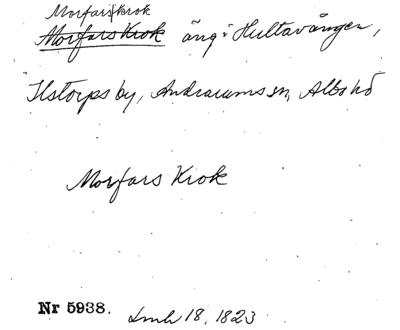 Morfarskrok
Morfars Krok äng i Hultavången,
Ilstorps by, Andrarums sn, Albo hd
Morfars Krok
Nr 5938. Lmh 18, 1823